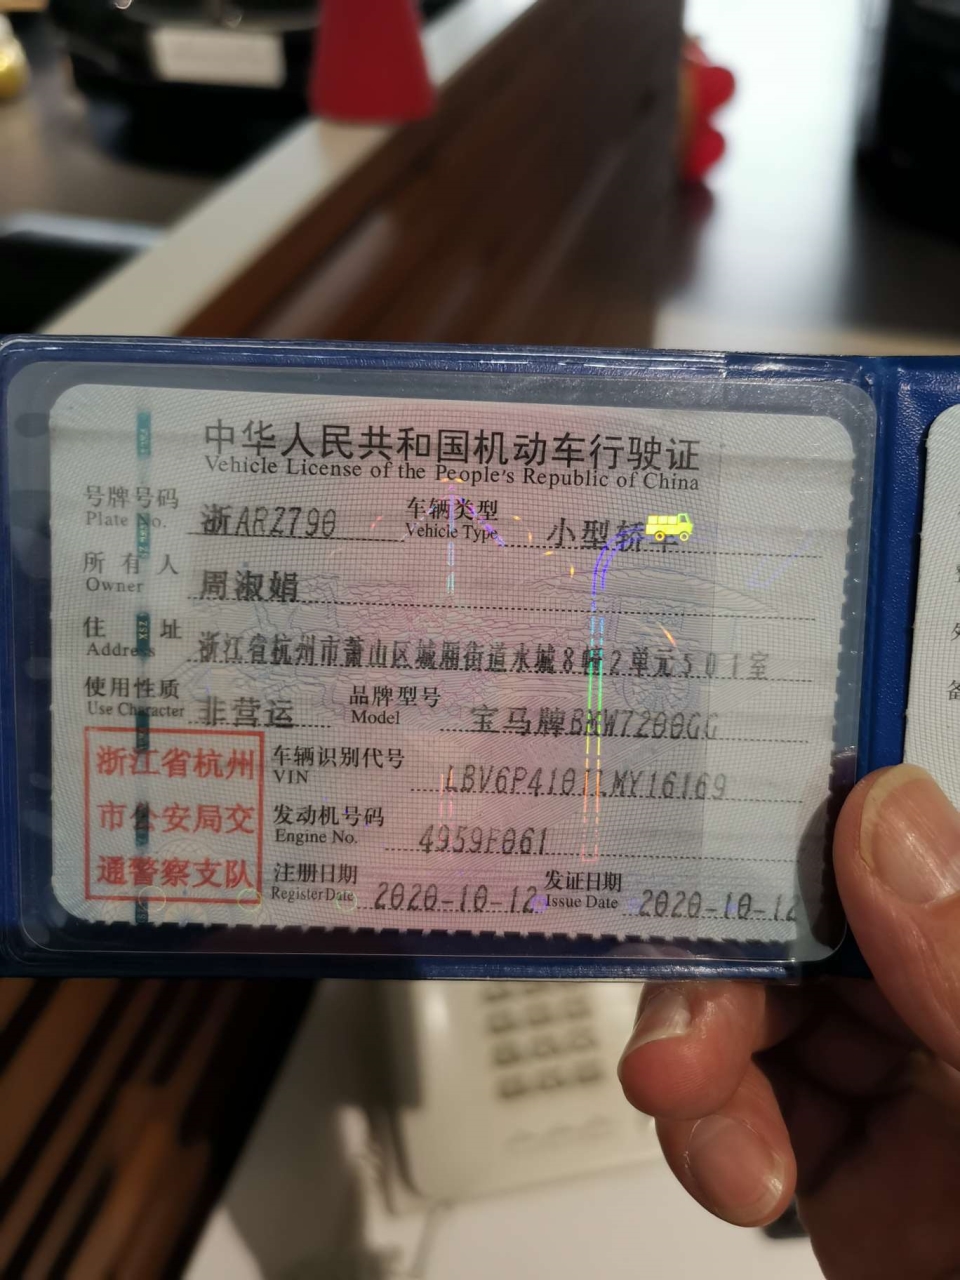 中华人民共和国机动车行驶证
Vehicle License of the People's Republic of China
号牌号码 浙ARZ790 车辆类型 小型轿车
Plate No. Vehicle Type
所有人 周淑娟
Owner
住址 浙江省杭州市萧山区城厢街道水城8幢2单元501室
Address
使用性质 非营运 品牌型号 宝马牌BMW7200GG
Use Character Model
浙江省杭州
市公安局交
通警察支队
车辆识别代号 LBV6P4101LMY16169
VIN
发动机号码 4959F061
Engine No.
注册日期 2020-10-12 发证日期 2020-10-12
Register Date Issue Date